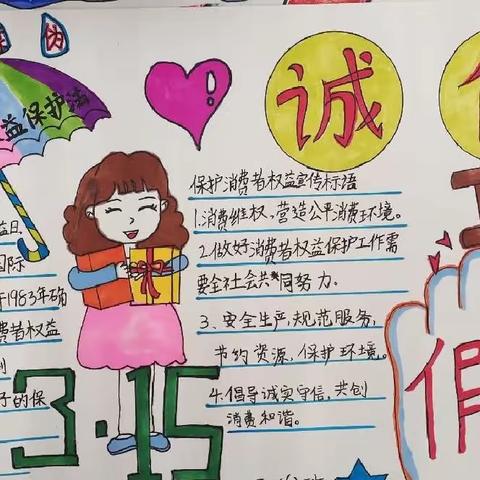 伪
益保护法
诚
保护消费者权益宣传标语
1.消费维权,营造公平消费环境。
2.做好消费者权益保护工作需
要全社会共同努力.
3、安全生产,规范服务,
节约资源,保护环境。
4.倡导诚实守信,共创
消费和谐。
益日
国际
于1983年确
费者权益
子的保
3·15